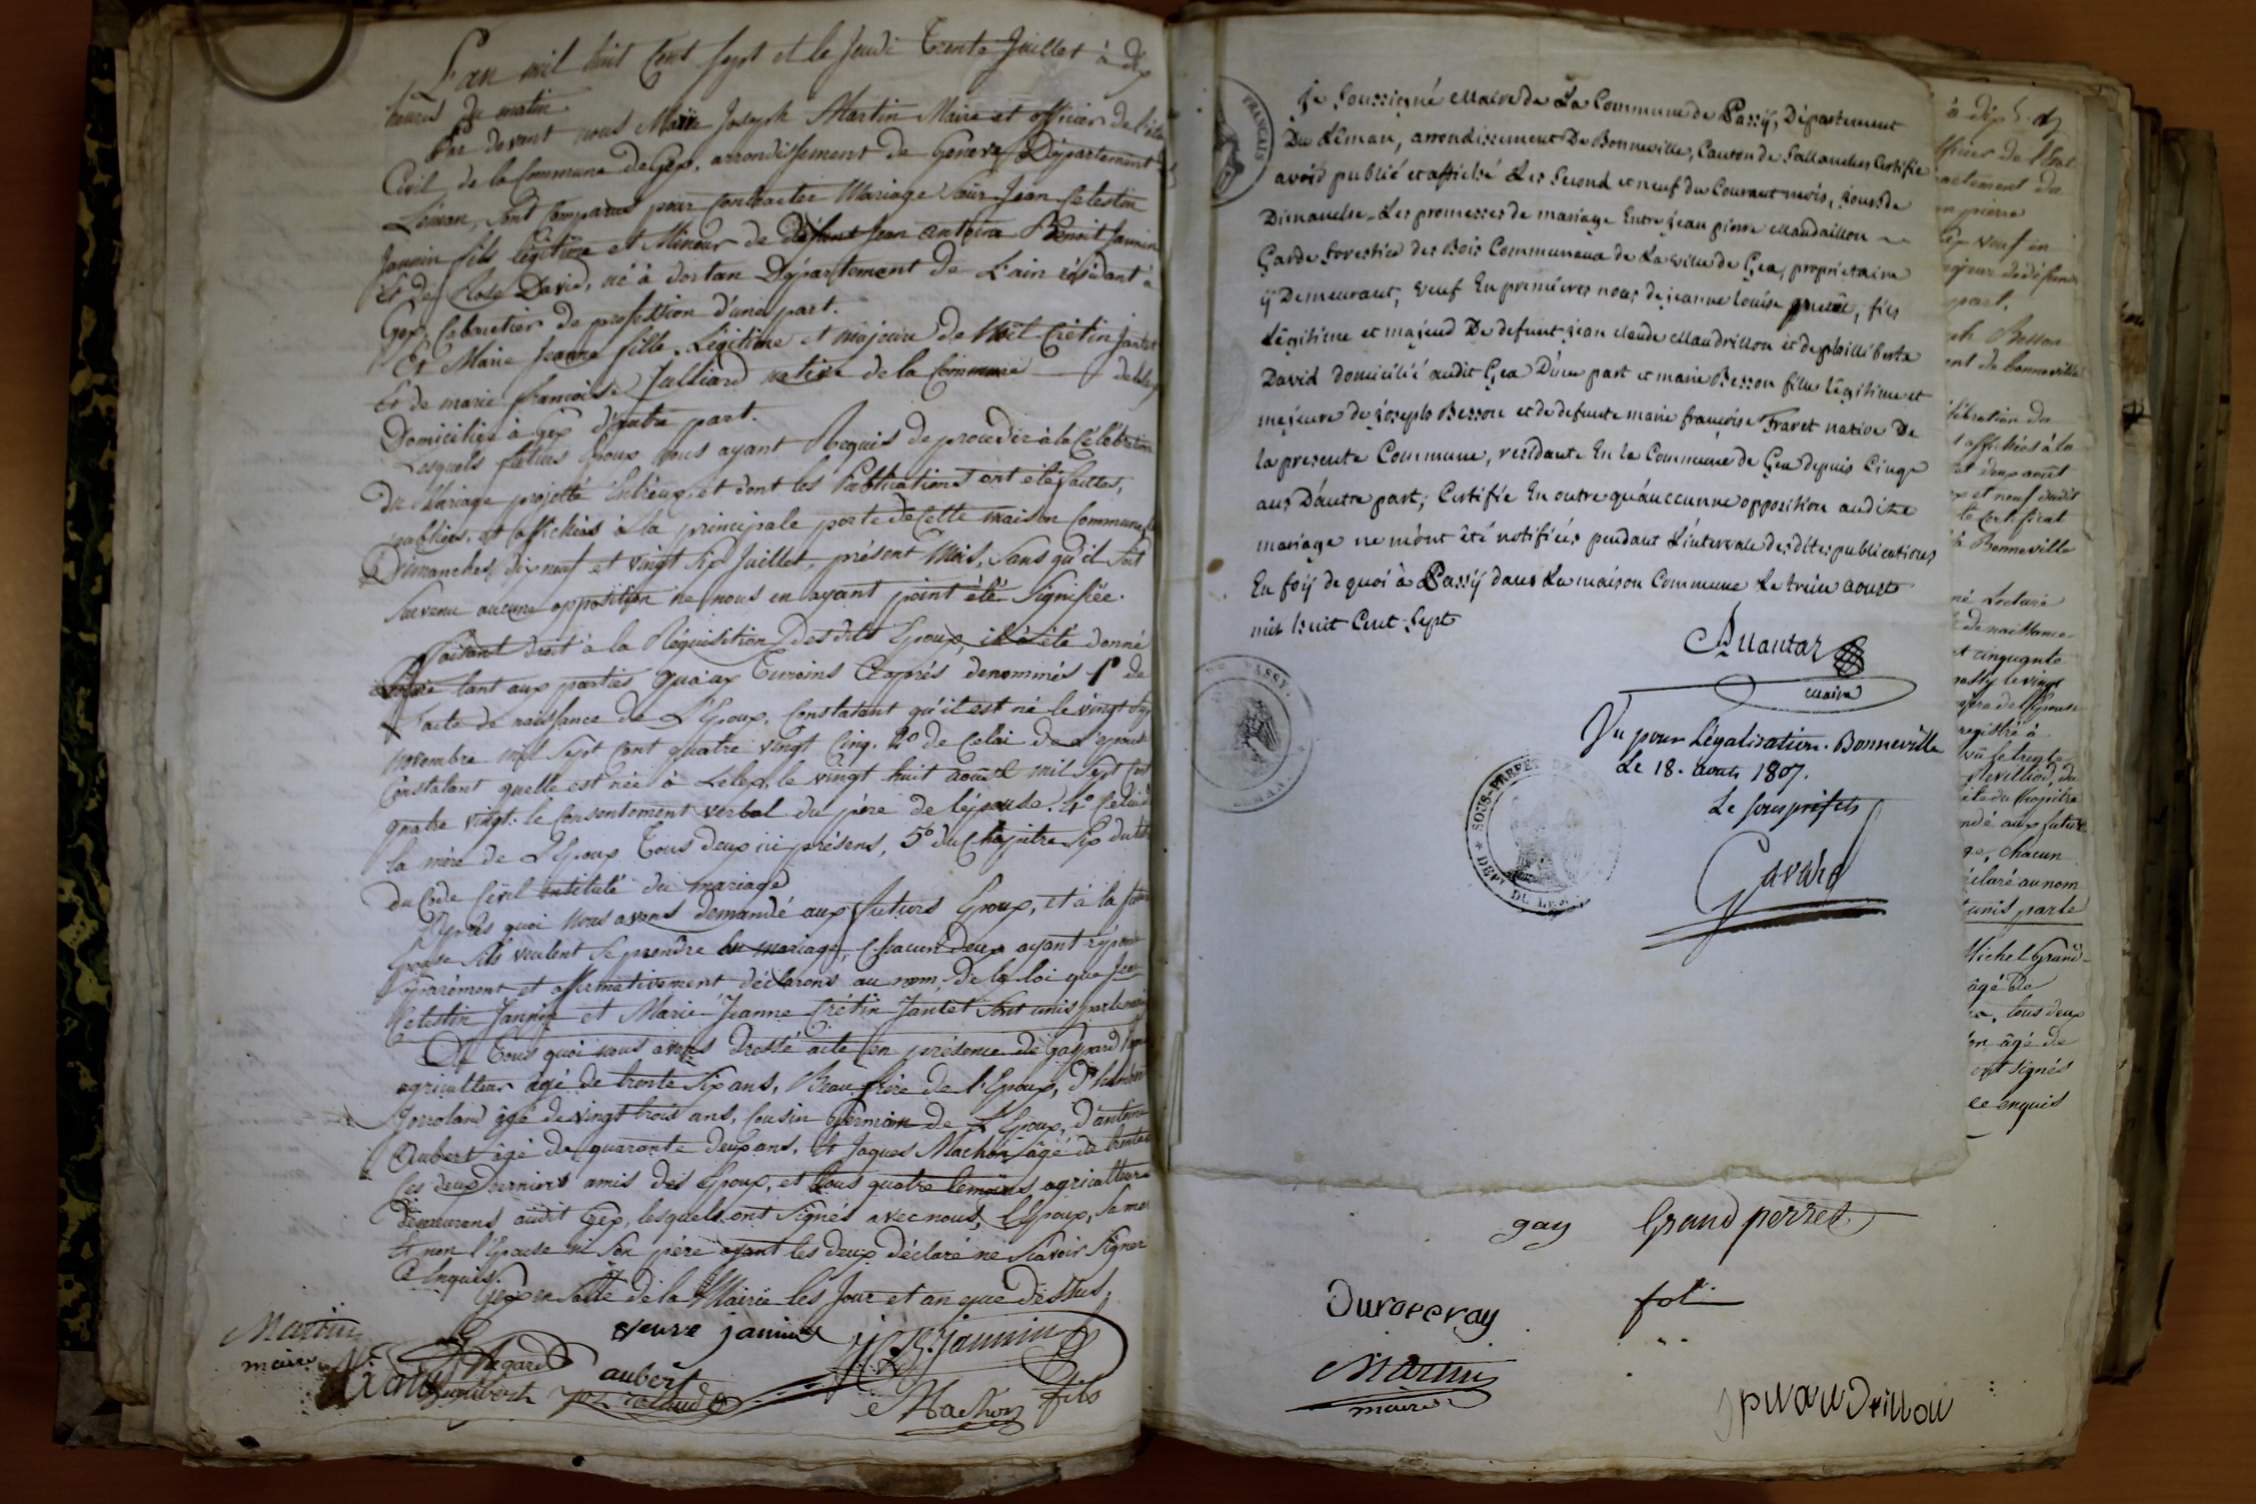 L'an mil huit Cent Sept et le Jeudi Trente Juillet à dix
heures du matin.
Par devant nous Marie Joseph Martin Maire et officier de l'état
Civil de la Commune de Gex, arrondissement de Geneve Département du
Léman, sont Comparus pour Contracter Mariage Jean Celestin
Jannin fils légitime et Mineur de défunt Jean antoine Benoit Jannin
et de Rose David, né à dortan Département de L'ain résidant à
Gex, Cabaretier de profession d'une part.
Et Marie Jeanne fille Légitime et majeure de Crétin Jantet
et de marie francoise Julliard native de la Commune de Lelex
Domiciliée à Gex d'autre part.
Lesquels futurs Epoux nous ayant Requis de proceder à la Célébration
du Mariage projetté Entreux, et dont les Publications ont été faites,
publiées, et affichées à la principale porte de Cette maison Commune les
Dimanches, dix neuf et vingt Six Juillet, présent Mois, Sans qu'il Soit
Survenu aucune opposition ne nous en ayant point été Signifiée.
Faisant droit à la Réquisition Des dits Epoux, il a été donné
tant aux parties qu'aux Témoins Ciaprés denommés 1º de
l'acte de naissance de L'Epoux, Constatant qu'il est né le vingt Sept
novembre mil Sept Cent quatre vingt Cinq. 2º de Celui de L'epouse
Constatant quelle est née à Lelex, le vingt huit aoust mil Sept Cent
quatre vingt. le Consentement verbal du père de l'épouse. 4º Celui de
la mère de L'Epoux Tous deux ici présens, 5º du Chapitre Six du titre
du Code Civil intitulé du mariage
Après quoi Nous avons demandé aux futurs Epoux, et à la future
Epouse s'ils veulent se prendre en mariage, Chacun deux ayant répondu
Séparément et affirmativement déclarons au nom de la loi que Jean
Celestin Jannin et Marie Jeanne Crétin Jantet Sont unis par le mariage
De Tous quoi nous avons dressé acte en présence de Gaspard
agriculteur âgé de trente Six ans, Beau frère de l'Epoux, d'humbert
âgé de vingt trois ans, Cousin Germain de L'Epoux, d'antoine
Aubert âgé de quarante deux ans, et Jaques Machon âgé de trente
Ces deux derniers amis des Epoux, et tous quatre temoins agriculteurs
demeurans audit Gex, lesquels ont Signés avec nous, L'Epoux, Sa mère
Et non l'Epouse ni Son père ayant les deux déclaré ne Scavoir Signer
Ce Enquis.
Gex en Salle de la Mairie les Jour et an que Dessus.
veuve jannin
Jannin
Martin
maire
aubert
Machon
fils
FRANÇAIS
je soussigné Maire de La Commune de Passÿ, Département
Du Léman, arrondissement De Bonneville, Canton de Sallanches Certifie
avoir publié et affiché Les Second et neuf du Courant mois, jours de
Dimanche, Les promesses de mariage Entre jean pierre Maudrillon
Garde forestier des Bois Communeaux de La ville de Gex, propriétaire
ÿ Demeurant, veuf En premieres noces de jeanne Louise, fils
Légitime et majeur De defunt jean claude Maudrillon et de philliberte
David domicilié audit Gex D'une part et marie Besson fille légitime et
majeure de joseph Besson et de defunte marie françoise Travet native De
la presente Commune, residante En la Commune de Gex depuis Cinq
ans D'autre part; Certifie En outre qu'auccunne opposition audite
mariage ne m'ont été notifiées pendant L'intervale desdites publications,
En foÿ de quoi à Passÿ dans La maison Commune Le treize aoust
mil huit Cent Sept
maire
PASSY.
LEMAN.
Vu pour Légalisation. Bonneville
Le 18. août 1807.
Le sous préfet
SOUS-PRÉFET DE
DÉPT DU LEMAN
Gavard
gay Grand perret
Duroveray
Martin
maire
à dix h. du
officier de l'état
partement du
pierre
veuf en
part,
Besson
de bonneville
célébration du
affichées à la
et deux août
et neuf dudit
le certificat
à Bonneville
Lecture
de naissance
et cinquante
passy le vingt
père de l'épouse
registré à
du Chapitre
aux futurs
chacun
déclaré au nom
unis par le
Michel Grand-
âgé de
tous deux
âgé de
ont signés
ce enquis